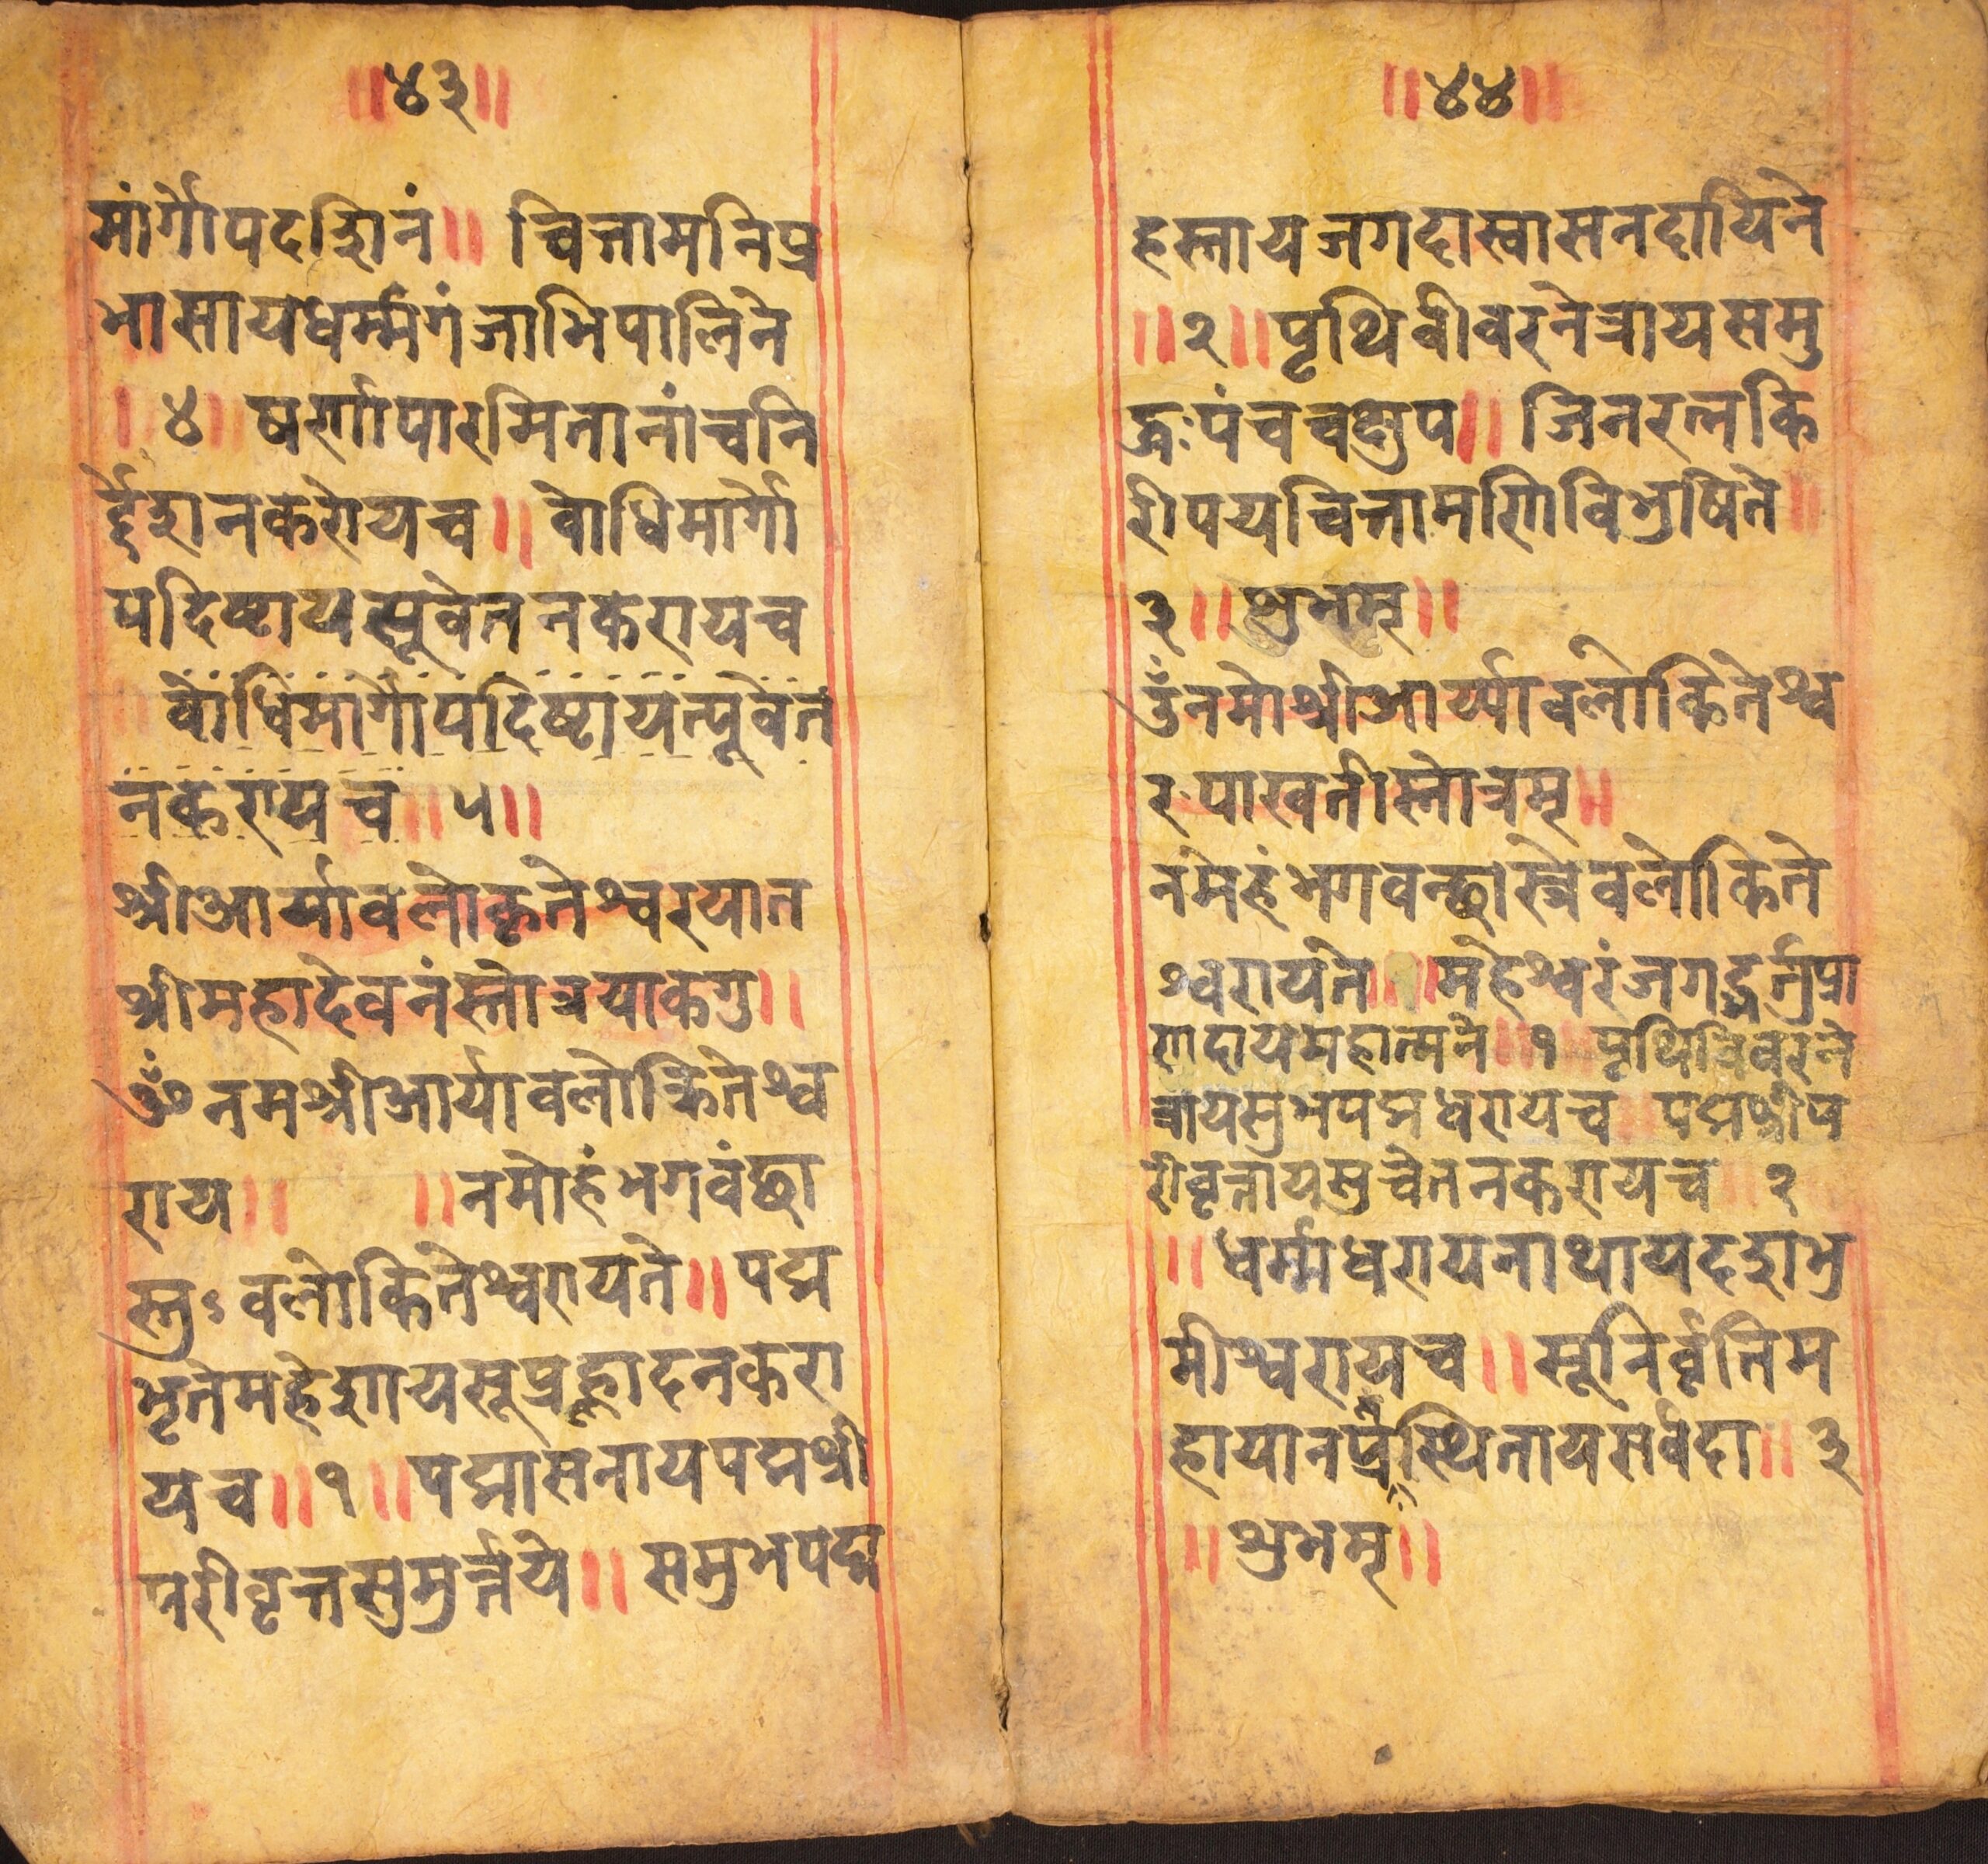 ॥४३॥
मांर्गोपदर्शिानं॥ चित्तामनिप्र
भासायधर्म्मगंजाभिपालिने
।४॥षर्णापारमितानांचनि
र्द्देशानकरोयच॥वोधिमार्गो
पदिष्टायसूचेतनकरायच
वोधिमार्गोपदिष्टायत्सूचेत
नकरायच॥५॥
श्रीआर्यावलोकृतेश्वरयात
श्रीमहादेवनंस्तोत्रयाकगु॥
ॐनमश्रीआर्यावलोकितेश्व
राय॥ ॥नमोहंभगवंछा
स्तुऽवलोकितेश्वरायते॥पद्म
भृतेमहेशायसूप्रह्लादनकरा
यच॥१॥पद्मासनायपद्मश्री
परीवृत्तसुमुर्त्तये॥समुभपद्म
॥४४॥
हस्तायजगदास्वासनदायिने
॥२॥पृथिवीवरनेत्रायसमु
द्धःपंचचक्षुप॥जिनरत्नकि
रीपयचित्तामणिविभुषिते॥
३॥शुभम्॥
ॐनमोश्रीआर्य्यावलोकितेश्व
रपारवतीस्तोत्रम्॥
नमेहंभगवन्छास्त्रेवलोकिते
श्वरायते॥॥महेश्वरंजगद्भर्त्तुप्रा
णदायमहात्मने॥१॥पृथिविवरने
त्रायसुभपद्मधरायच॥पद्मश्रीप
रीवृत्तायसुचेतनकरायच॥२
॥धर्म्माधरायनाथायदशभु
मीश्वरायच॥सूनिर्वृत्तिम
हायानप्रस्थितायसर्वदा॥३
॥शुभम्॥